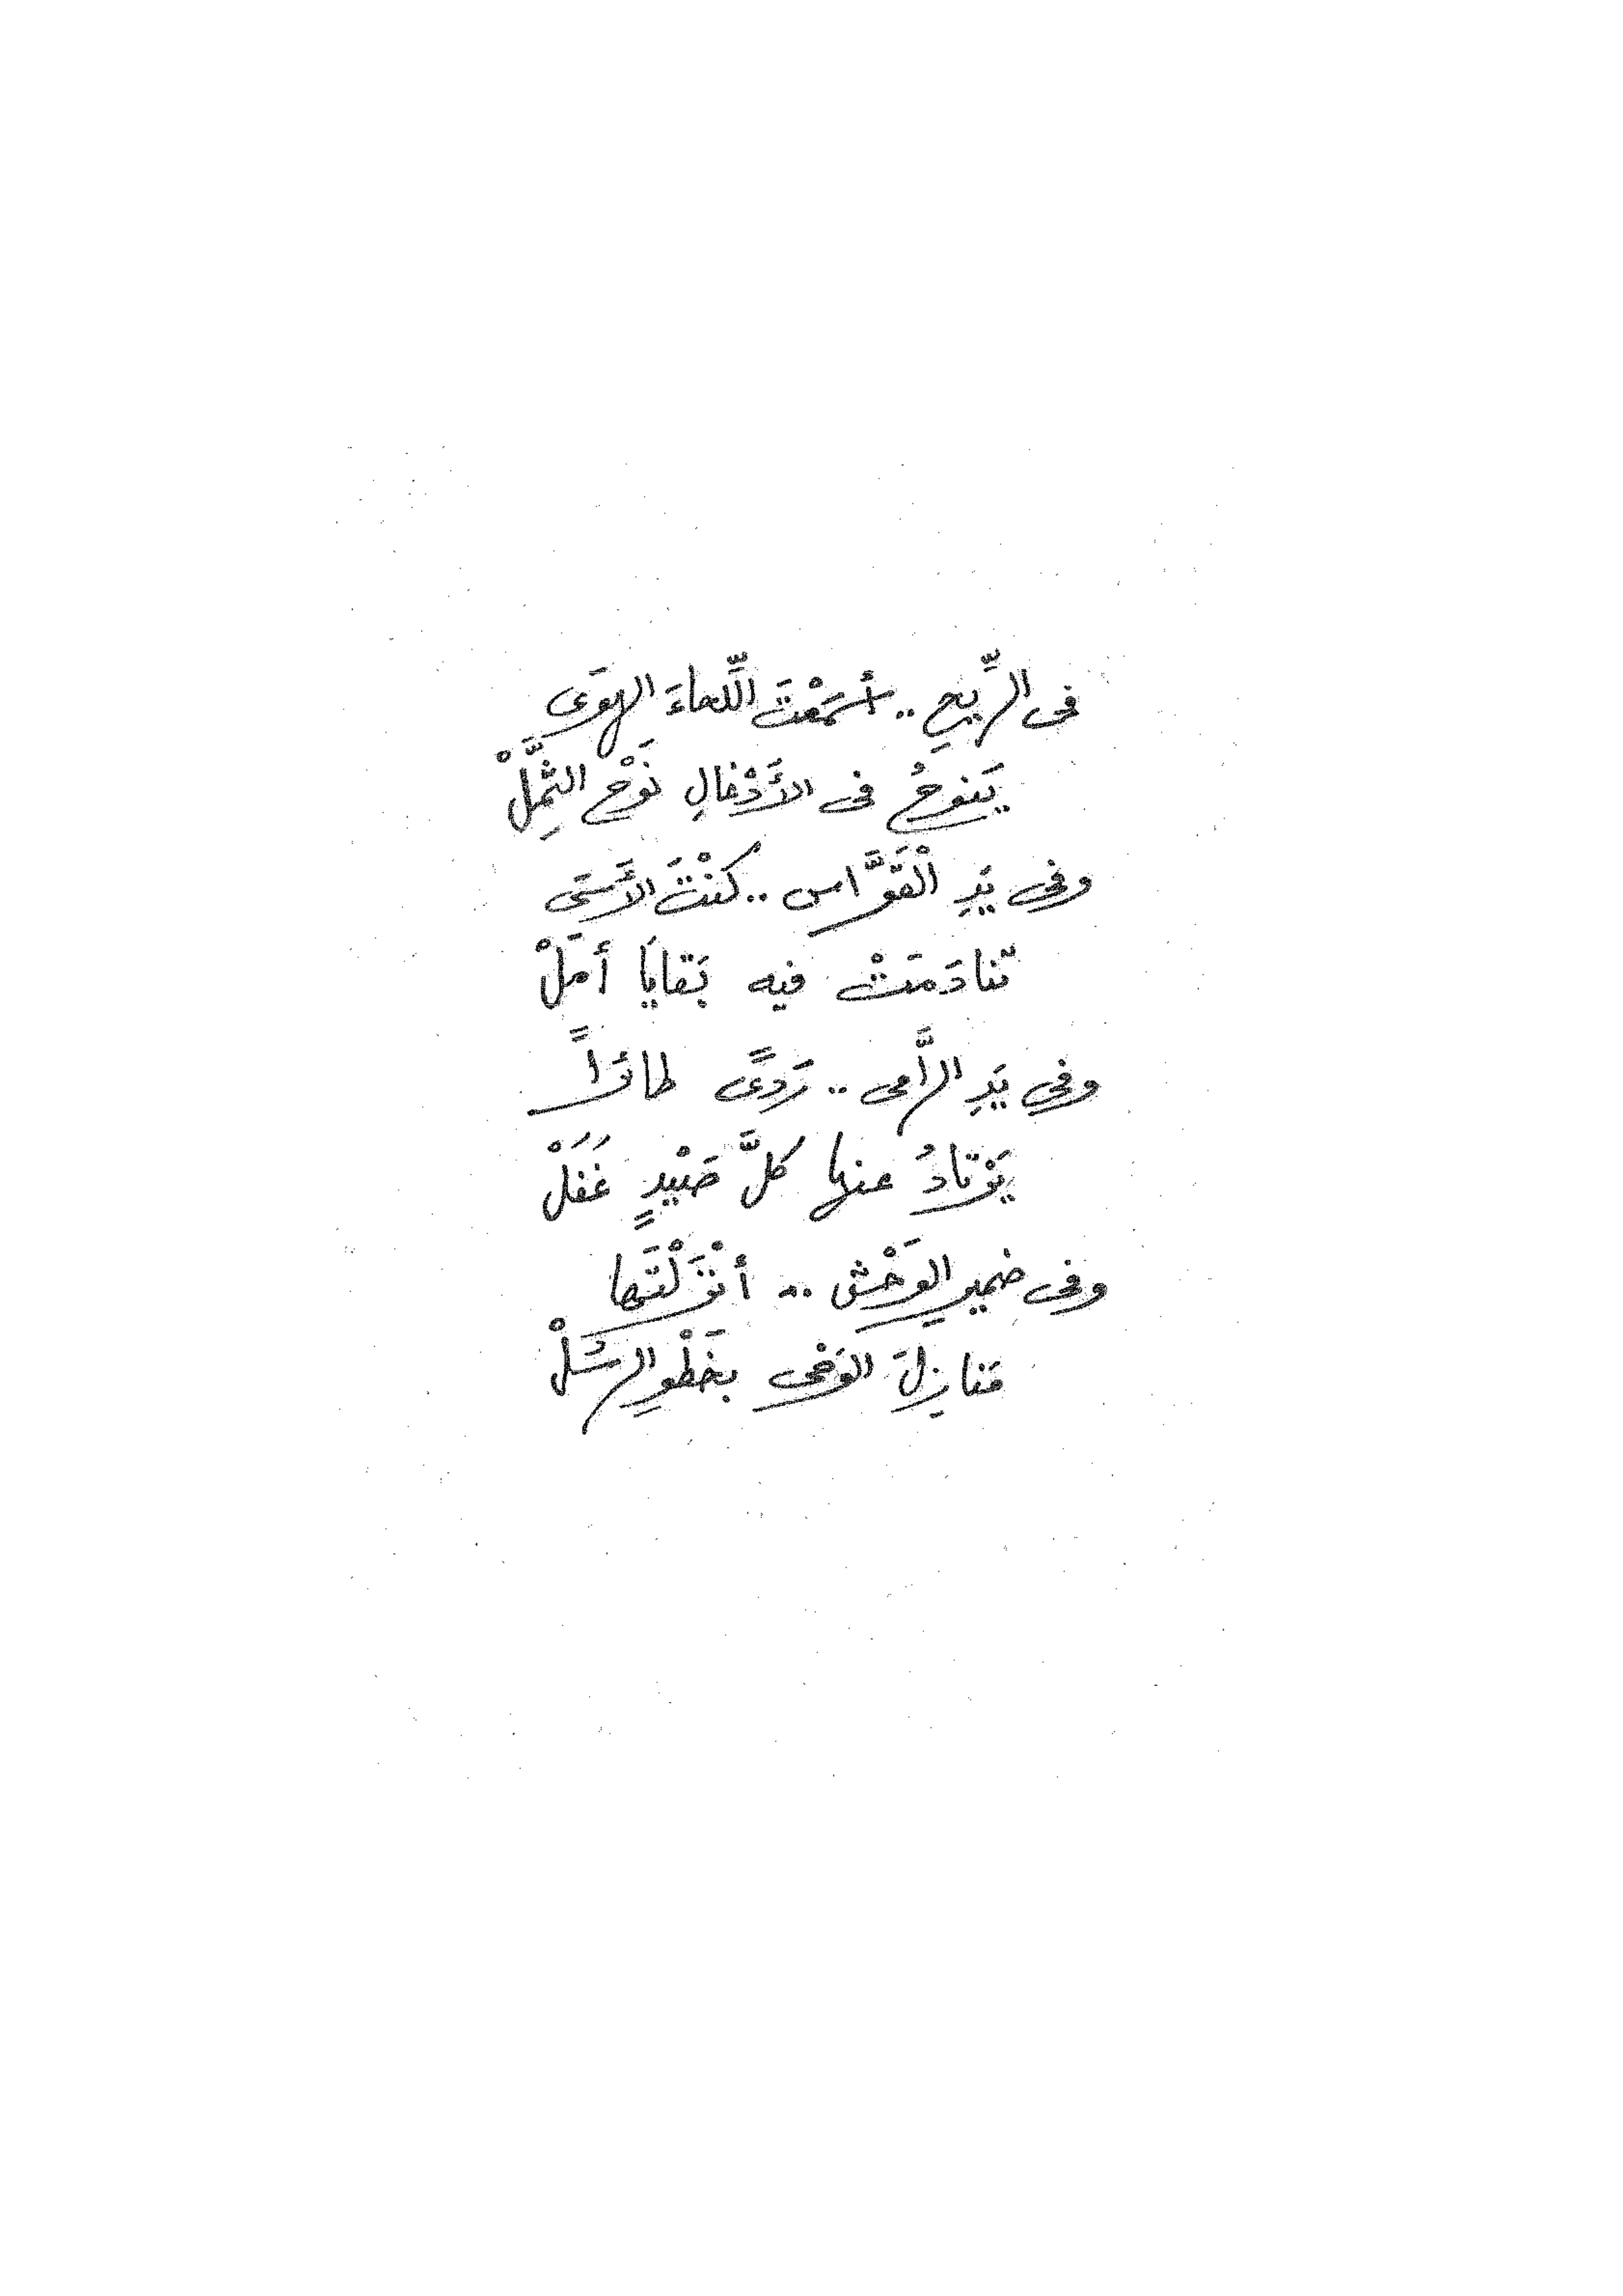 فى الرِّيحِ .. أسْمَعْتَ اللِّحاءَ الهوَى
يَنوحُ فى الأَدْغالِ نَوْحَ الثَّمِلْ
وفى يَدِ الْقَوَّاس .. كنْتَ الأَسَى
تنادَمَتْ فيه بَقايَا أمَلْ
وفى يَدِ الرَّامى .. رَدىً طائرًا
يَرْتادُ عنها كلَّ صَيْدٍ غَفَلْ
وفى ضميرِ الوَحْش .. أنْزَلْتَها
مَنازِلَ الوَحْى بخَطْوِ الرسُلْ